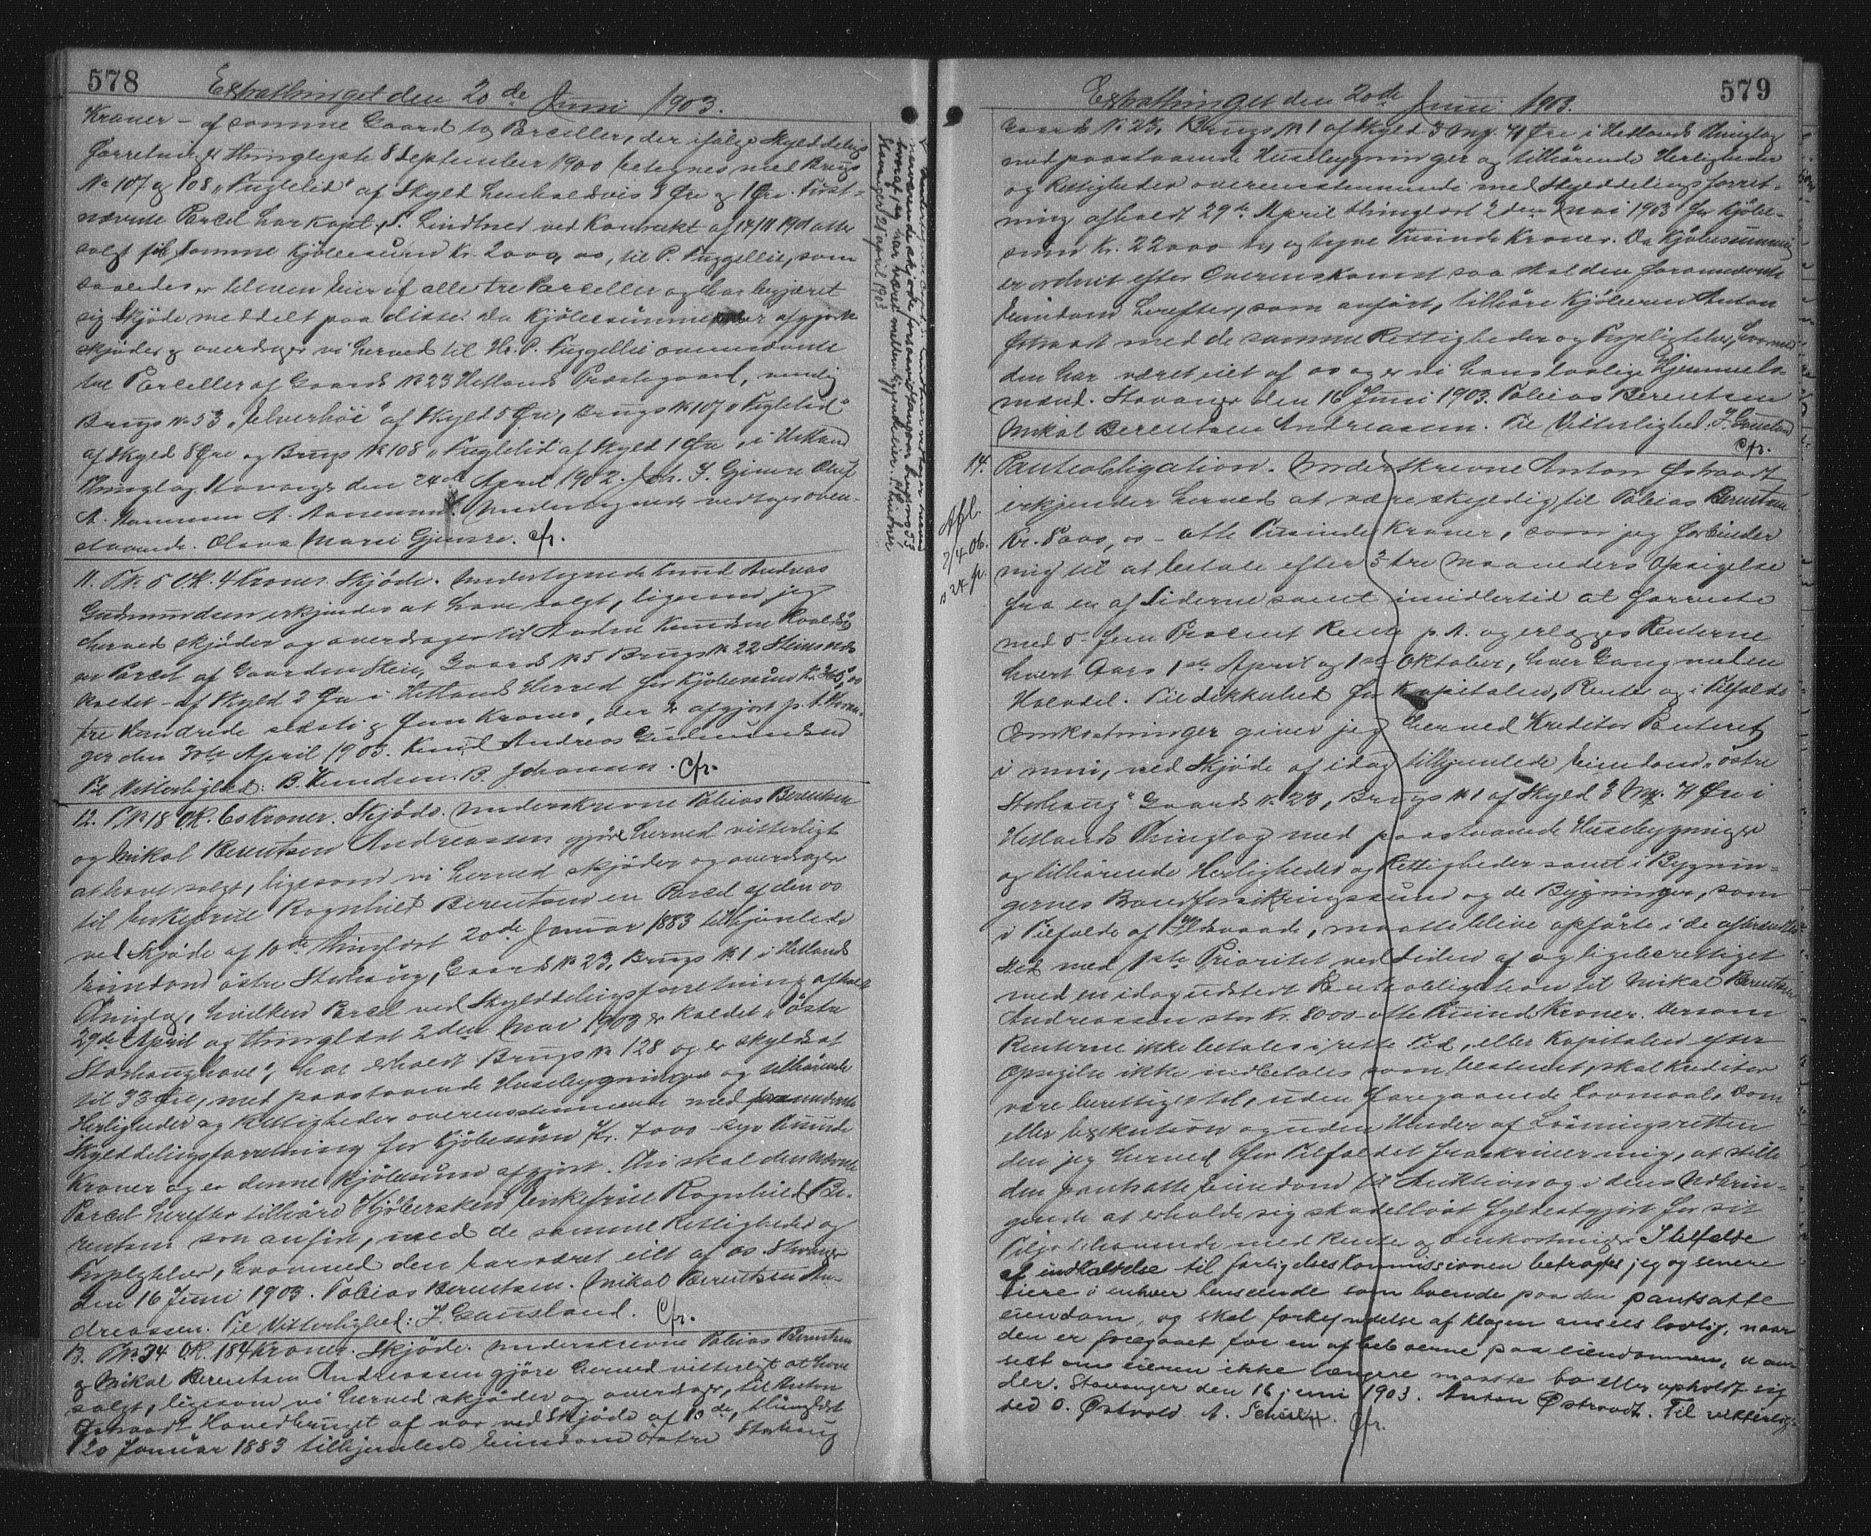 578
Extrathinget den 20de Juni 1903.
Kroner – af samme Gaard to Parceller, der ifølge Skylddelings
forretninger thinglæste 8 September 1900 betegnes med Brugs
No 107 og 108 „Fuglelid" af Skyld henholdsvis 8 Øre og 1 Øre. Først-
nævnte Parcel har kapt. S. Lindtner ved Kontrakt af 14/11 1901 atter
solgt for samme Kjøbesum Kr. 2000,00, til P. Puggellie, som
saaledes er bleven Eier af alle tre Parceller og har begjæret
sig Skjøde meddelt paa disse. Da Kjøbesummen er afgjort
skjøder og overdrager vi herved til Hr. P. Puggellie ovennævnte
tre Parceller af Gaards No 23 Hetlands Præstegaard, nemlig
Brugs No 53 „Elverhöi" af Skyld 5 Øre, Brugs No 107 „Fuglelid"
af Skyld 8 Øre og Brugs No 108 „Fuglelid af Skyld 1 Øre, i Hetland
Thinglag. Stavanger den 24de April 1902. Joh. S. Gjemre Oluf
A. Hammer A. Aanensen Undertegnede vedtager oven-
staaende. Olava Marie Gjemre. Cfr.
11. No 5 OK. 4 Kroner. Skjøde. Undertegnede Knud Andreas
Gudmundsen erkjender at have solgt, ligesom jeg
herved skjøder og overdrager til Andre Knudsen
en Parcel af Gaarden Stein, Gaards No 5 Brugs No 22
kaldet – af Skyld 2 Øre i Hetlands Herred for Kjøbesum Kr. 365,00
tre Hundrede seksti og fem Kroner, der er afgjort p.t. Stavan-
ger den April 1903. Knud Andreas Gudmundsen
Til Vitterlighed: B. Knudsen. B. Johansen. Cfr.
12. No 18 OK. 6 Kroner. Skjøde. Underskrevne Tobias Berentsen
og Mikal Berentsen Andreassen gjøre herved vitterligt
at have solgt, ligesom vi herved skjøder og overdrager
til Enkefrue Ragnhild Berentsen en Parcel af den os
ved Skjøde af 10de thinglæst 20de Januar 1883 tilhjemlede
Eiendom östre Storhaug, Gaards No 23, Brugs No 1 i Hetlands
Thinglag, hvilken Parcel ved Skylddelingsforretning afholdt
29de April og thinglæst 2den Mai 1903 er kaldet „Östre
Storhaughave", har erholdt Brugs No 128 og er skyldsat
til 33 Øre, med paastaaende Husebygninger og tilhørende
Herligheder og Rettigheder overensstemmende med fornævnte
Skylddelingsforretning for Kjöbesum Kr. 7000 – syv Tusinde
Kroner og er denne Kjöbesum afgjort. Thi skal den nævnte
Parcel herefter tilhøre Kjöbersken Enkefrue Ragnhild Be-
rentsen som anført, med de samme Rettigheder og
Forpligtelser, hvormed den har været eiet af os. Stavanger
den 16 Juni 1903. Tobias Berentsen. Mikal Berentsen An-
dreassen. Til Vitterlighed: J. Gausland. Cfr.
13. No 34 OK. 184 Kroner. Skjøde. Underskrevne Tobias Berentsen
og Mikal Berentsen Andreassen gjöre herved vitterligt at have
solgt, ligesom vi herved skjøder og overdrager, til Anton
Østraadt Hovedbruget af vor ved Skjøde af 10de, thinglæst
20 Januar 1883 tilhjemlede Eiendom östre Storhaug
Stavanger 21 april 1903
579
Extrathinget den 20de Juni 1903.
Gaards No 23, Brugs No 1 af Skyld 3 Mk. 71 Øre i Hetlands Thinglag
med paastaaende Husebygninger og tilhörende Herligheder
og Rettigheder overensstemmende med Skylddelingsforret-
ning afholdt 29de April thinglæst 2den Mai 1903 for Kjöbe-
sum Kr. 22000 to og tyve Tusinde Kroner. Da Kjöbesummen
er ordnet efter Overenskomst saa skal den forannævnte
Eiendom herefter, som anført, tilhöre Kjöberen Anton
Østraadt med de samme Rettigheder og Forpligtelser, hvormed
den har været eiet af os og er vi hans lovlige Hjemmels-
mænd. Stavanger den 16 Juni 1903. Tobias Berentsen
Mikal Berentsen Andreassen. Til Vitterlighed: J. Gausland
Cfr.
14. Panteobligation. Underskrevne Anton Østraadt
Afl.
2/4 06.
erkjender herved at være skyldig til Tobias Berentsen
Kr. 8000,00 – otte Tusinde Kroner, som jeg forbinder
mig til at betale efter 3 tre Maaneders Opsigelse
fra en af Siderne samt imidlertid at forrente
med 5 fem Procent Rente p. A. og erlægges Renterne
hvert Aars 1ste April og 1ste Oktober, hver Gang med en
Halvdel. Til Sikkerhed for Kapitalen, Renter og i Tilfælde
Omkostninger giver jeg herved Kreditor Panteret
i min, ved Skjøde af idag tilhjemlede Eiendom, östre
Storhaug" Gaards No 23, Brugs No 1 af Skyld 3 Mk. 71 Øre i
Hetlands Thinglag med paastaaende Husebygninger
og tilhörende Herligheder og Rettigheder samt i Bygnin-
gernes Brandforsikringssum og de Bygninger, som
i Tilfælde af Ildsvaade, maatte blive opførte i de afbrændtes
Sted med 1ste Prioritet ved Siden af og ligeberettiget
med en idag udstedt Panteobligation til Mikal Berentsen
Andreassen stor Kr. 8000 – otte Tusinde Kroner. Dersom
Renterne ikke betales i rette Tid, eller Kapitalen efter
Opsigelse ikke indbetales som bestemt, skal Kreditor
være berettiget til, uden foregaaende Lovmaal, Dom
eller Exekution og uden Hinder af Løsningsretten
den jeg herved for Tilfældet fraskriver mig, at stille
den pantsatte Eiendom til Auktion og i dens Udbrin-
gende at erholde sig skadesløst fyldestgjort for sit
Tilgodehavende med Renter og Omkostninger. I tilfælde
af indtalelse til forligelseskommissionen betragtes jeg og senere
eiere i enhver henseende som boende paa den pantsatte
eiendom, og skal forkyndelse af klagen ansees lovlig, naar
den er foregaaet for en af beboerne paa eiendommen, uan-
seet om eieren ikke længere maatte bo eller opholde sig
der. Stavanger den 16 juni 1903. Anton Østraadt. Til vitterlig-
hed O. Østvold A. Schultz. Cfr.